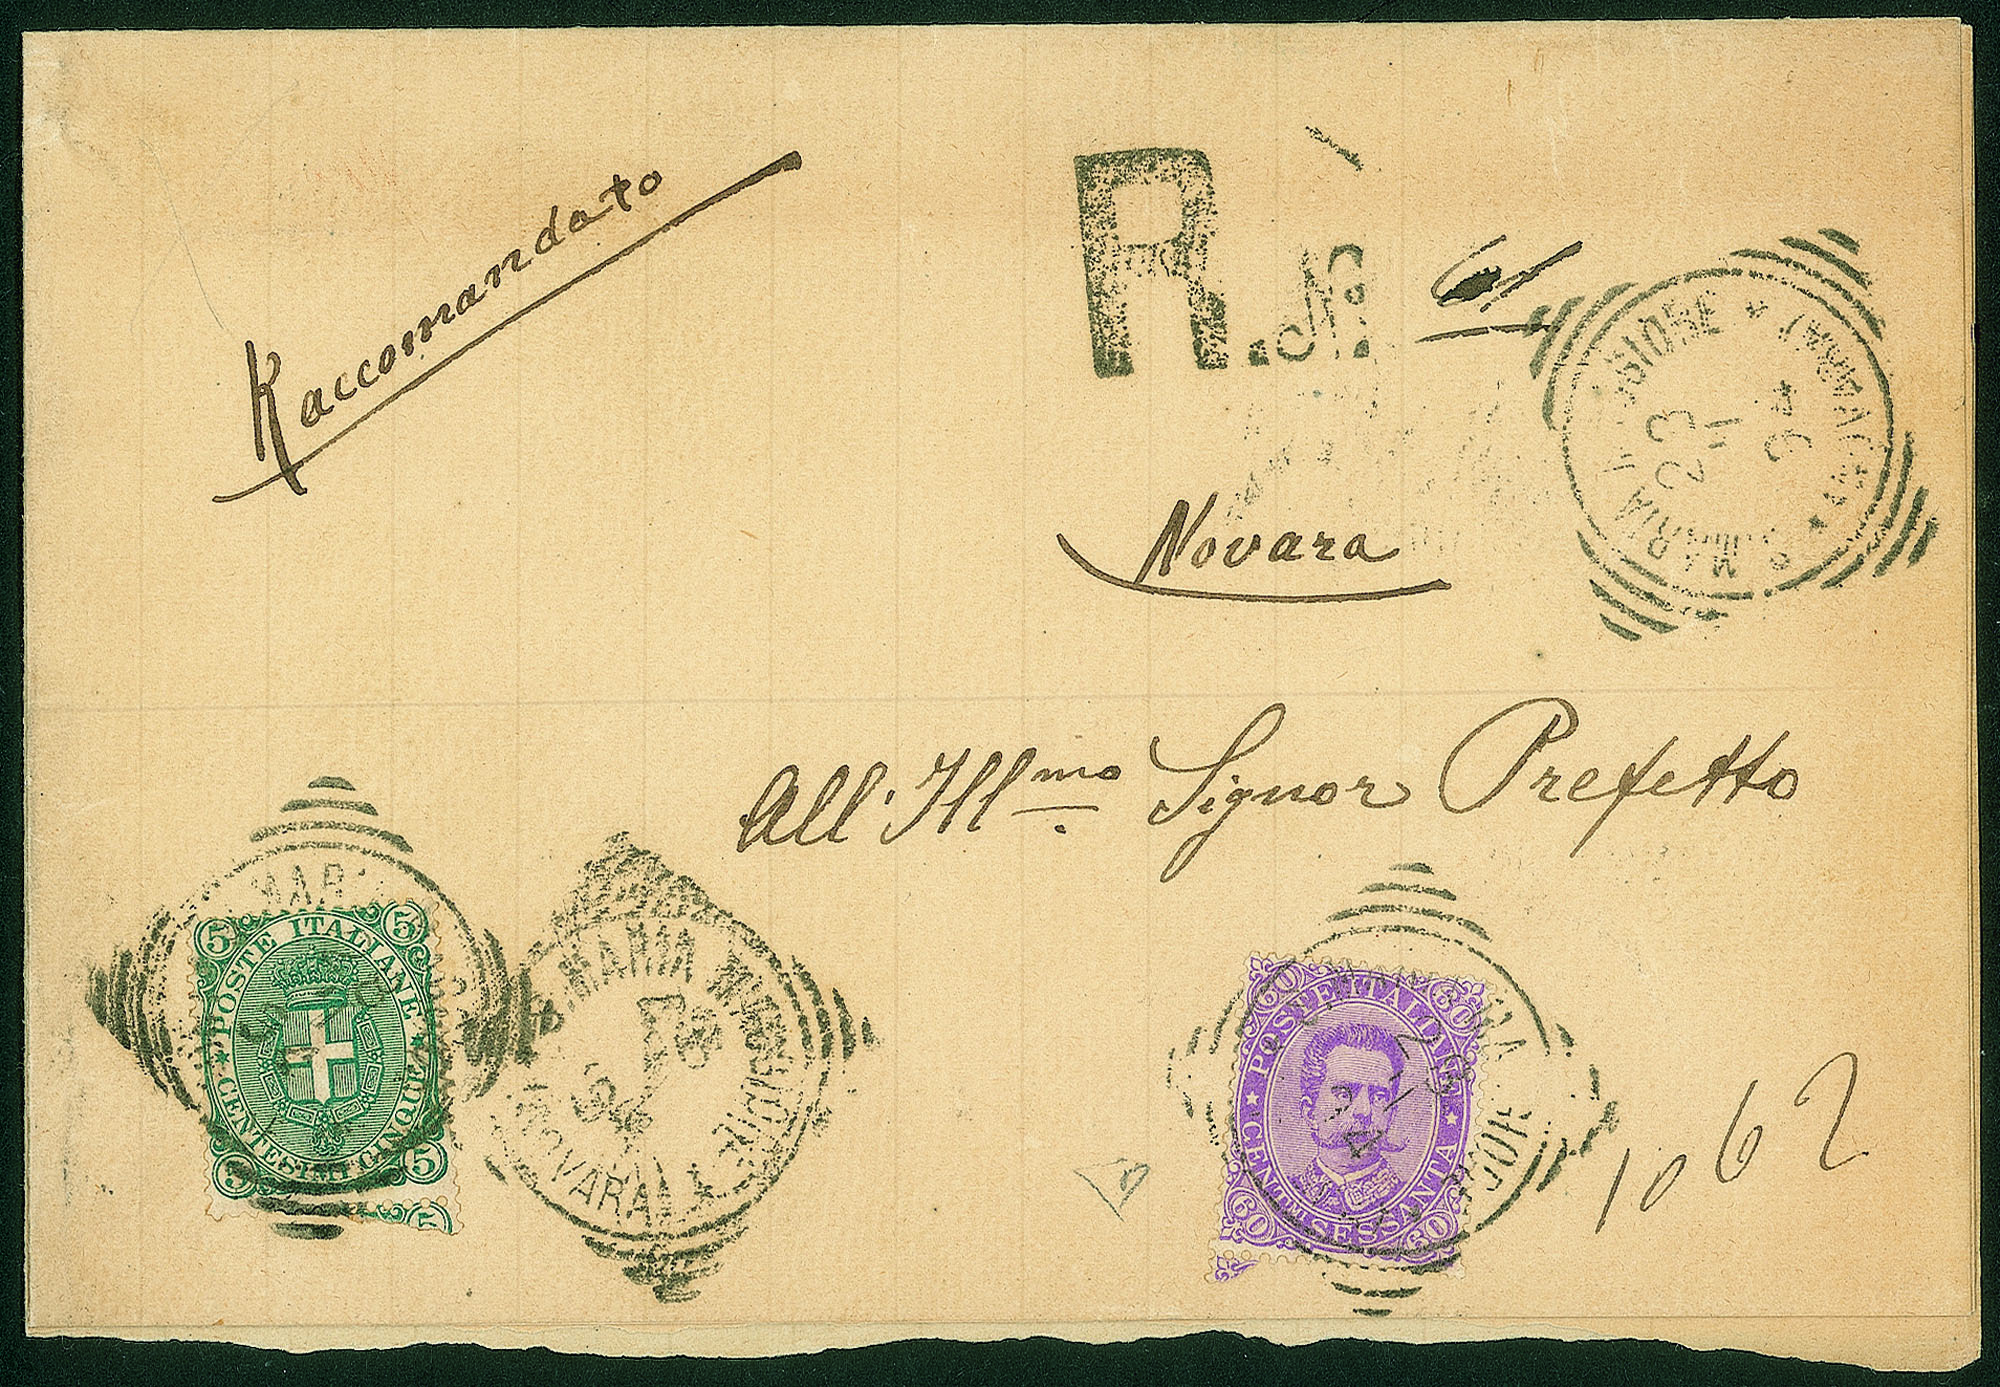 Raccomandato
R. N.
Novara
All' Ill.mo Signor Prefetto
MARIA MAGGIORE * (NOVARA) *
23
11
94
MARIA
5 5
POSTE ITALIANE
CENTESIMI CINQUE
5 5
5
S. MARIA MAGGIORE
94
(NOVARA)
60 60
POSTE ITALIANE
CENTMI SESSANTA
60 60
1062